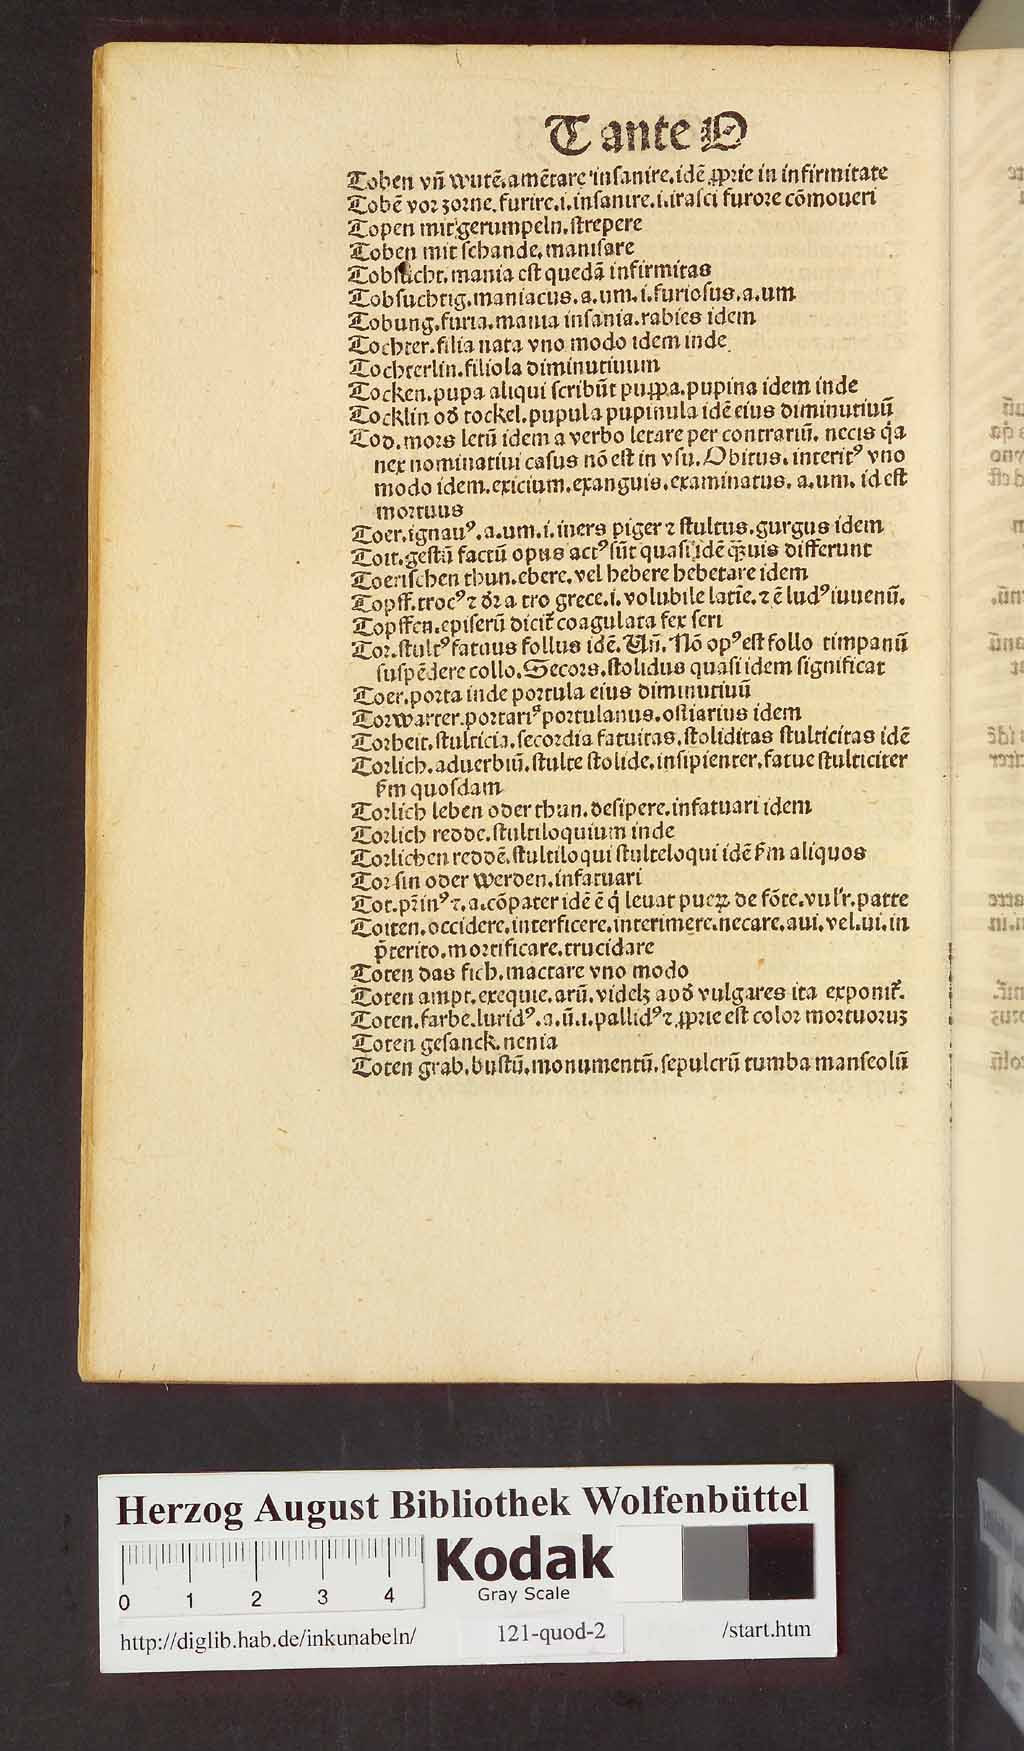 T ante O
Toben vn̄ wutē.amētare insanire.idē ꝓprie in infirmitate
Tobē vor zorne.furire.i.insanire.i.irasci furore cōmoueri
Topen mit gerumpeln.strepere
Toben mit schande.manisare
Tobsucht.mania est quedā infirmitas
Tobsuchtig.maniacus.a.um.i.furiosus.a.um
Tobung.furia.mania insania.rabies idem
Tochter.filia nata vno modo idem inde
Tochterlin.filiola diminutiuum
Tocken.pupa aliqui scribūt puꝑpa.pupina idem inde
Tocklin od̄ tockel.pupula pupinula idē eius diminutiuū
Tod.mors letū idem a verbo letare per contrariū. necis q̇a
nex nominatiui casus nō est in vsu.Obitus.interitꝰ vno
modo idem.exicium.exanguis.examinatus. a.um. id est
mortuus
Toer.ignauꝰ.a.um.i.iners piger ⁊ stultus.gurgus idem
Toit.gestū factū opus actꝰ sūt quasi idē q̄uis differunt
Toerischen thun.ebere.vel hebere hebetare idem
Topff.trocꝰ ⁊ dr̄ a tro grece.i.volubile latīe.⁊ ē ludꝰ iuuenū.
Topffen.episerū dicit̄ coagulata fex seri
Tor.stultꝰ fatuus follus idē. Un̄. Nō opꝰ est follo timpanū
suspēdere collo.Secors.stolidus quasi idem significat
Toer.porta inde portula eius diminutiuū
Torwarter.portariꝰ portulanus.ostiarius idem
Torheit.stulticia.secordia fatuitas.stoliditas stulticitas idē
Torlich.aduerbiū.stulte stolide.insipienter.fatue stulticiter
ẜm quosdam
Torlich leben oder thun.desipere.infatuari idem
Torlich redde.stultiloquium inde
Torlichen reddē.stultiloqui stulteloqui idē ẜm aliquos
Tor sin oder werden.infatuari
Tot.pr̄inꝰ ⁊.a.cōpater idē ē q̇ leuat pueꝝ de fōte.vulr̄.patte
Toiten.occidere.interficere.interimere.necare.aui.vel.ui.in
p̄terito.mortificare.trucidare
Toten das fich.mactare vno modo
Toten ampt.exequie.arū.videlꝫ apd̄ vulgares ita exponit̄.
Toten.farbe.luridꝰ.a.ū.i.pallidꝰ ⁊ ꝓprie est color mortuoruꝫ
Toten gesanck.nenia
Toten grab.bustū.monumentū.sepulcrū tumba manseolū
Herzog August Bibliothek Wolfenbüttel
Kodak
Gray Scale
0 1 2 3 4
http://diglib.hab.de/inkunabeln/ 121-quod-2 /start.htm